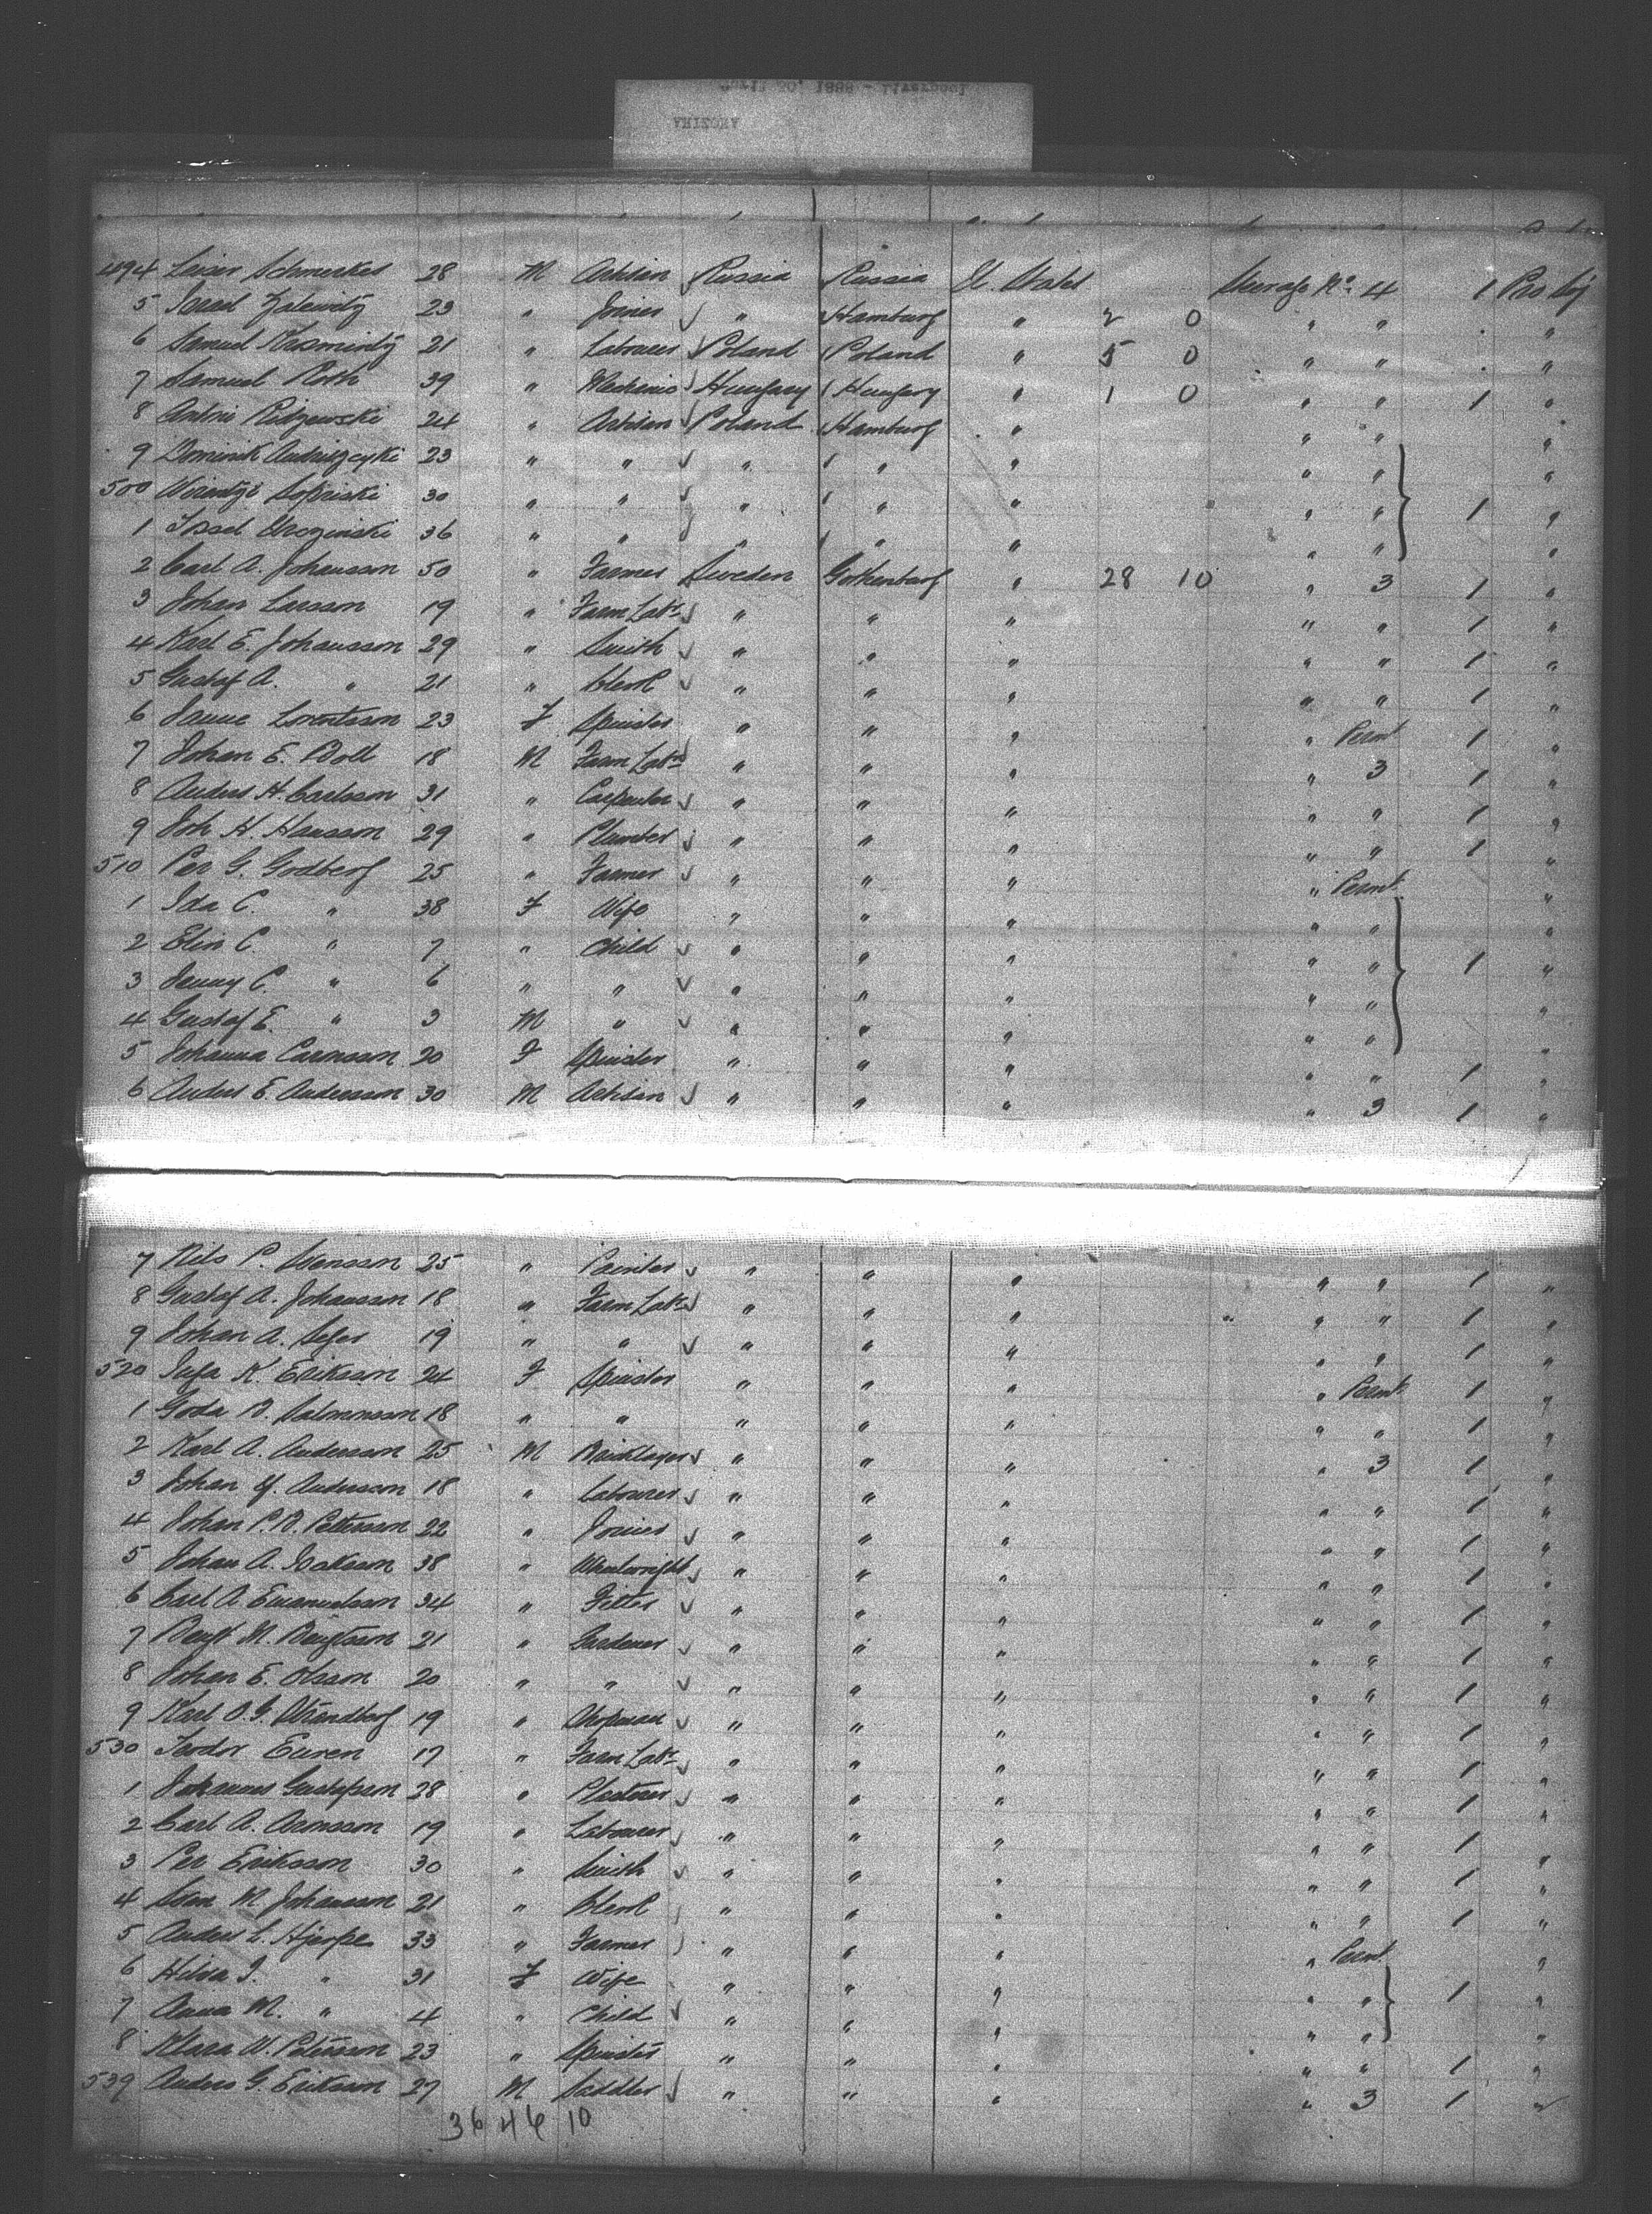 ARIZONA
April 30, 1888 - Liverpool
494 Leiser Schmerkes 28 M Artisan Russia Russia U. States Steerage No. 4 1 Pro Soj
5 Israel 23 " Joiner " Hamburg " 2 0 " " "
6 Samuel 21 " Labourer Poland Poland " 5 0 " " "
7 Samuel Roth 39 " Mechanic Hungary Hungary " 1 0 " " 1 "
8 Antoni 24 " Artisan Poland Hamburg " " " "
9 Dominik 23 " " " " " " " "
500 30 " " " " " " " 1 "
1 36 " " " " " " " "
2 Carl A. Johansson 50 " Farmer Sweden Gothenburg " 28 10 " 3 1 "
3 Johan Larsson 19 " Farm Labr " " " " " 1 "
4 Karl E. Johansson 29 " Smith " " " " " 1 "
5 Gustaf A. " 21 " Clerk " " " " " 1 "
6 Lorentsson 23 F Spinster " " " " Permt 1 "
7 Johan E. Boll 18 M Farm Labr " " " " 3 1 "
8 Anders H. Carlsson 31 " Carpenter " " " " " 1 "
9 Joh H. Hansson 29 " Plumber " " " " " 1 "
510 Per G. Godberg 25 " Farmer " " " " Permt "
1 Ida C. " 38 F Wife " " " " " "
2 Elin C. " 7 " Child " " " " " 1 "
3 Jenny C. " 6 " " " " " " " "
4 Gustaf E. " 3 M " " " " " " "
5 Johanna 20 F Spinster " " " " " 1 "
6 Anders E. Andersson 30 M Artisan " " " " 3 1 "
7 Nils P. Svensson 25 " Painter " " " " " 1 "
8 Gustaf A. Johansson 18 " Farm Labr " " " " " 1 "
9 Johan A. 19 " " " " " " " 1 "
520 K. Eriksson 24 F Spinster " " " " Permt 1 "
1 Salomonsson 18 " " " " " " " 1 "
2 Karl A. Andersson 25 M Bricklayer " " " " 3 1 "
3 Johan Andersson 18 " Labourer " " " " " 1 "
4 Johan P. B. Pettersson 22 " Joiner " " " " " 1 "
5 Johan A. Isaksson 38 " Wheelwright " " " " " 1 "
6 Carl A. Emanuelsson 34 " Fitter " " " " " 1 "
7 Bengt M. Bengtsson 21 " Gardener " " " " " 1 "
8 Johan E. Olsson 20 " " " " " " " 1 "
9 Karl O. G. Strandberg 19 " Shopman " " " " " 1 "
530 Euren 17 " Farm Labr " " " " " 1 "
1 Johannes Gustafsson 28 " Plasterer " " " " " 1 "
2 Carl A. Aronsson 19 " Labourer " " " " " 1 "
3 Per Eriksson 30 " Smith " " " " " 1 "
4 Sven M. Johansson 21 " Clerk " " " " " 1 "
5 Anders L. Hjerpe 33 " Farmer " " " " Permt "
6 31 F Wife " " " " " 1 "
7 Anna M. " 4 " Child " " " " " "
8 Klara W. Petersson 23 " Spinster " " " " " 1 "
539 Anders G. Eriksson 27 M Saddler " " " " 3 1 "
36 46 10